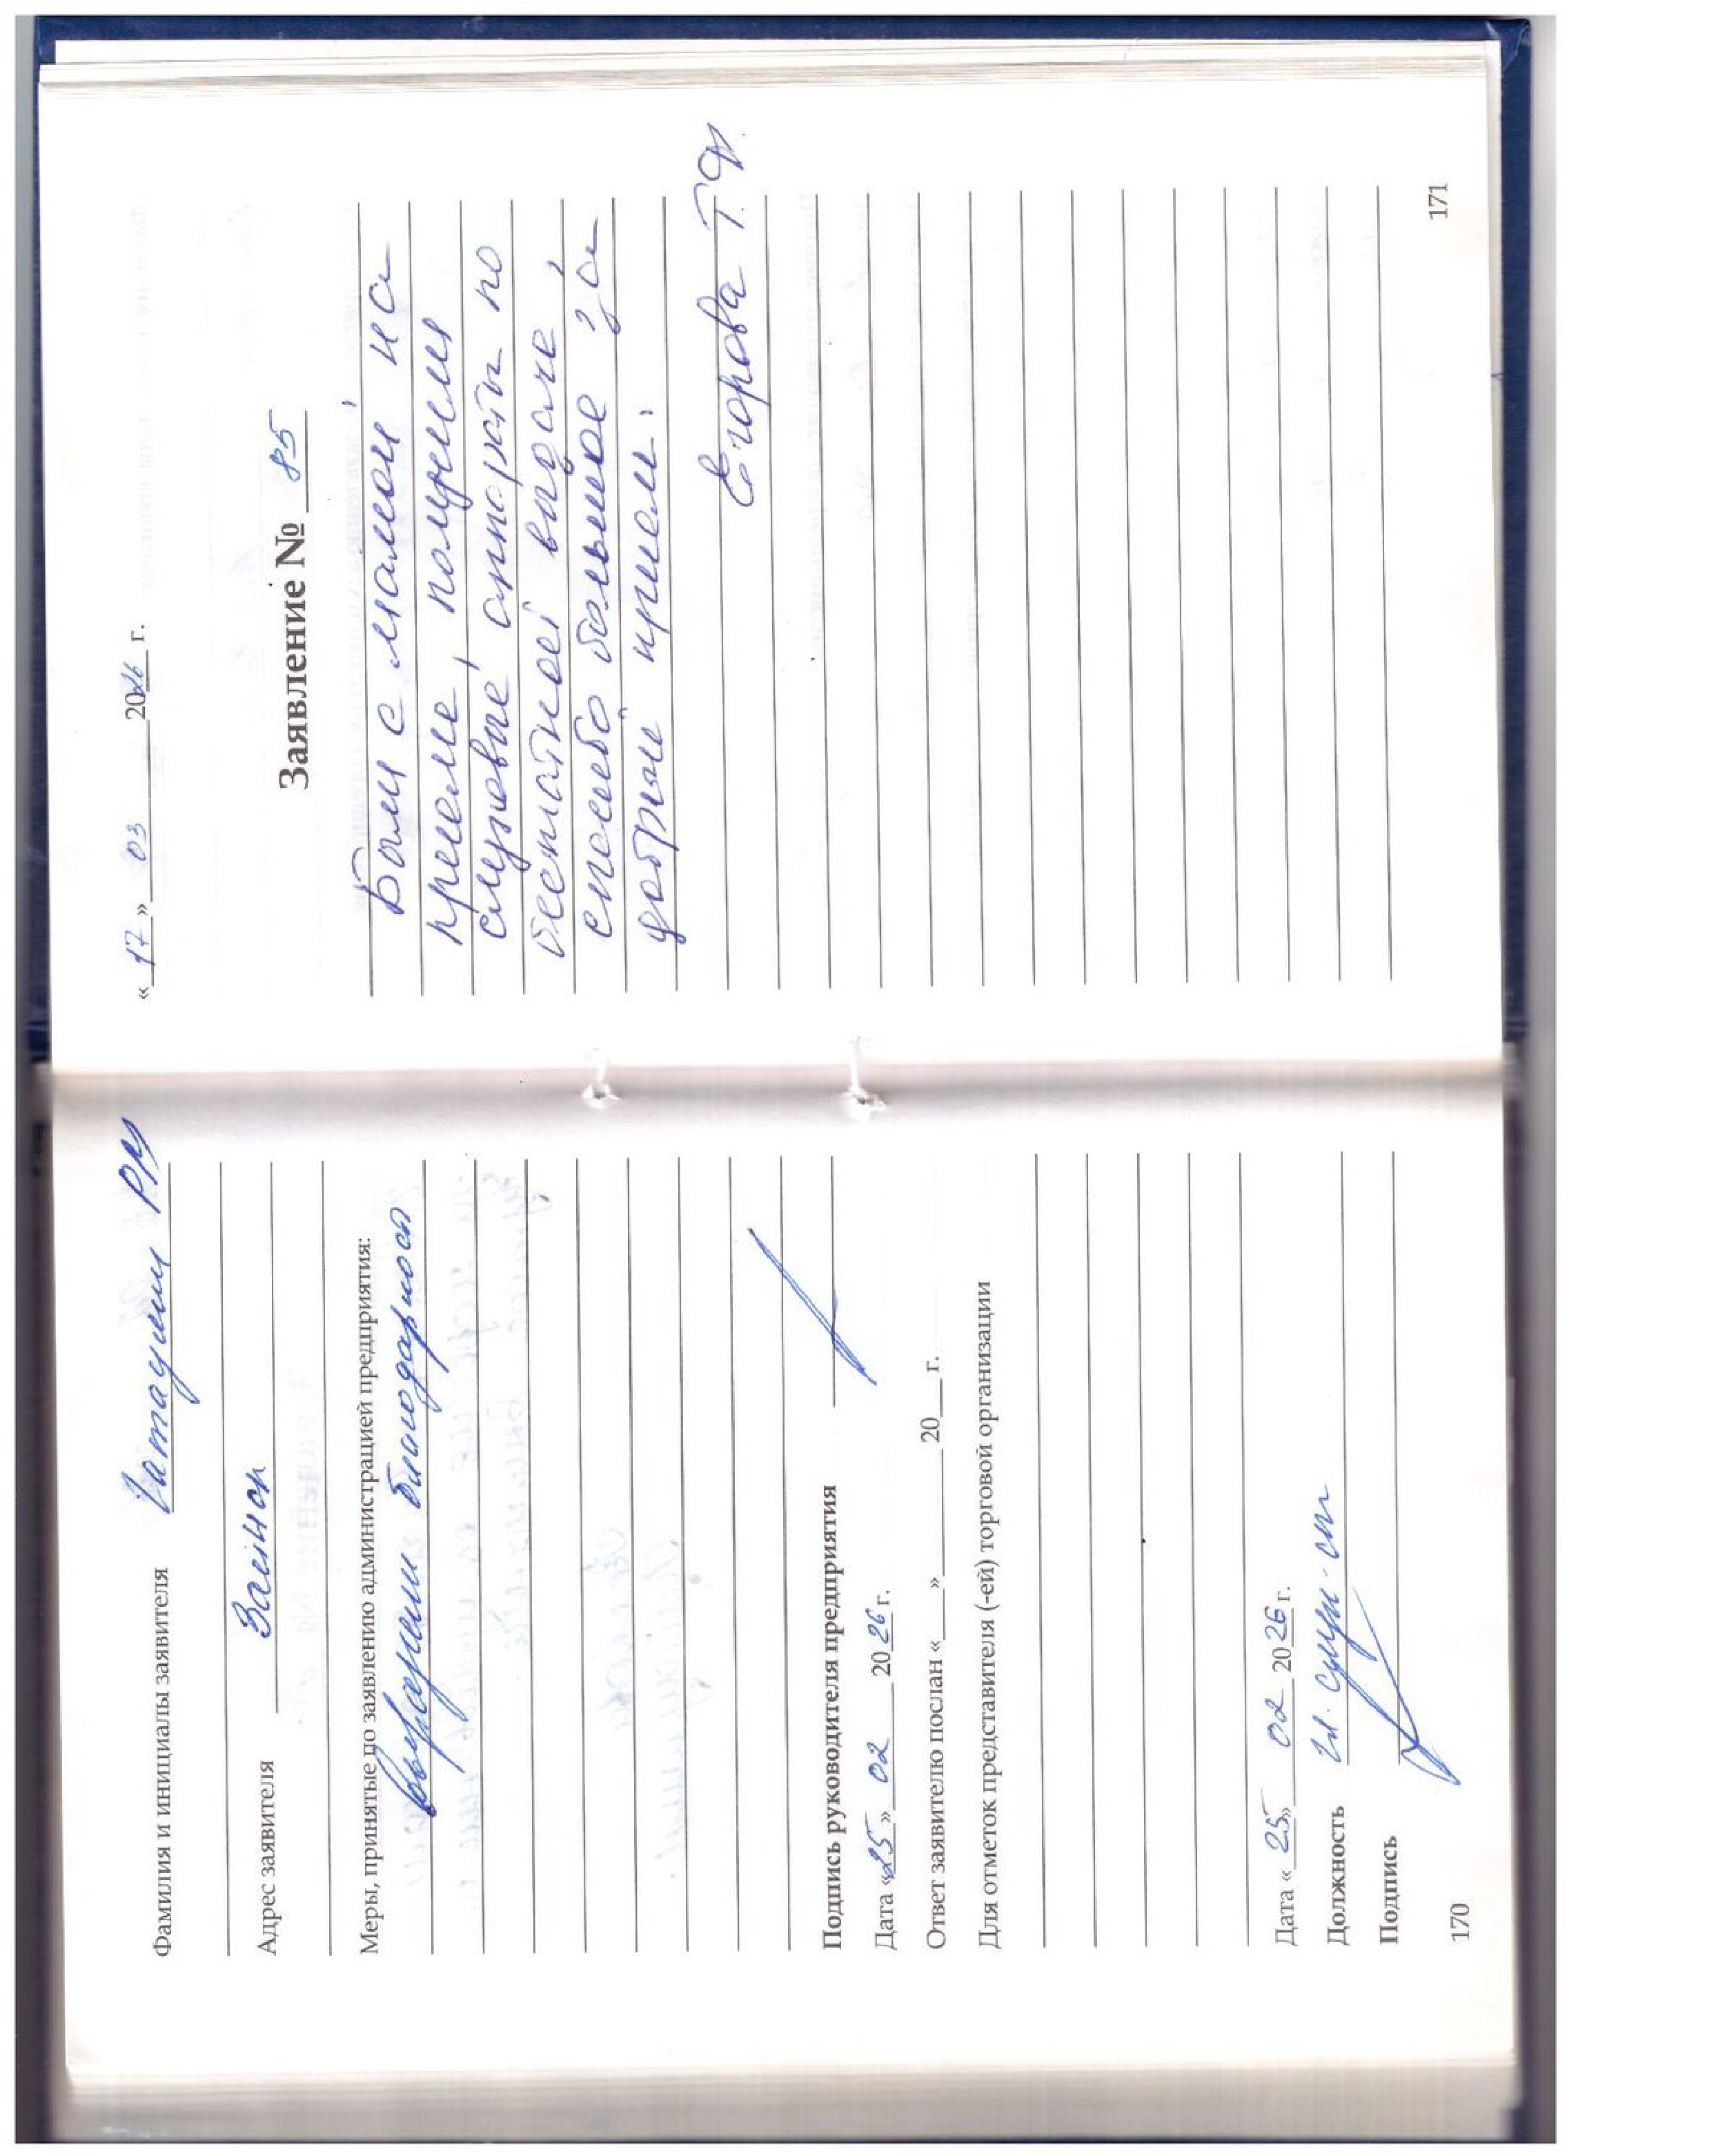 Фамилия и инициалы заявителя
РМ
Адрес заявителя Заинск
Меры, принятые по заявлению администрацией предприятия:
выражена благодарность
Подпись руководителя предприятия
Дата «25» 02 2026 г.
Ответ заявителю послан «___»________20__ г.
Для отметок представителя (-ей) торговой организации
Дата «25» 02 2026 г.
Должность Гл.
Подпись
170
«17» 03 2026 г.
Заявление № 85
Были с мамой на
приеме, получили
слуховые аппараты по
бесплатной выдаче,
спасибо большое за
добрый прием.
Егорова Т.Ф.
171